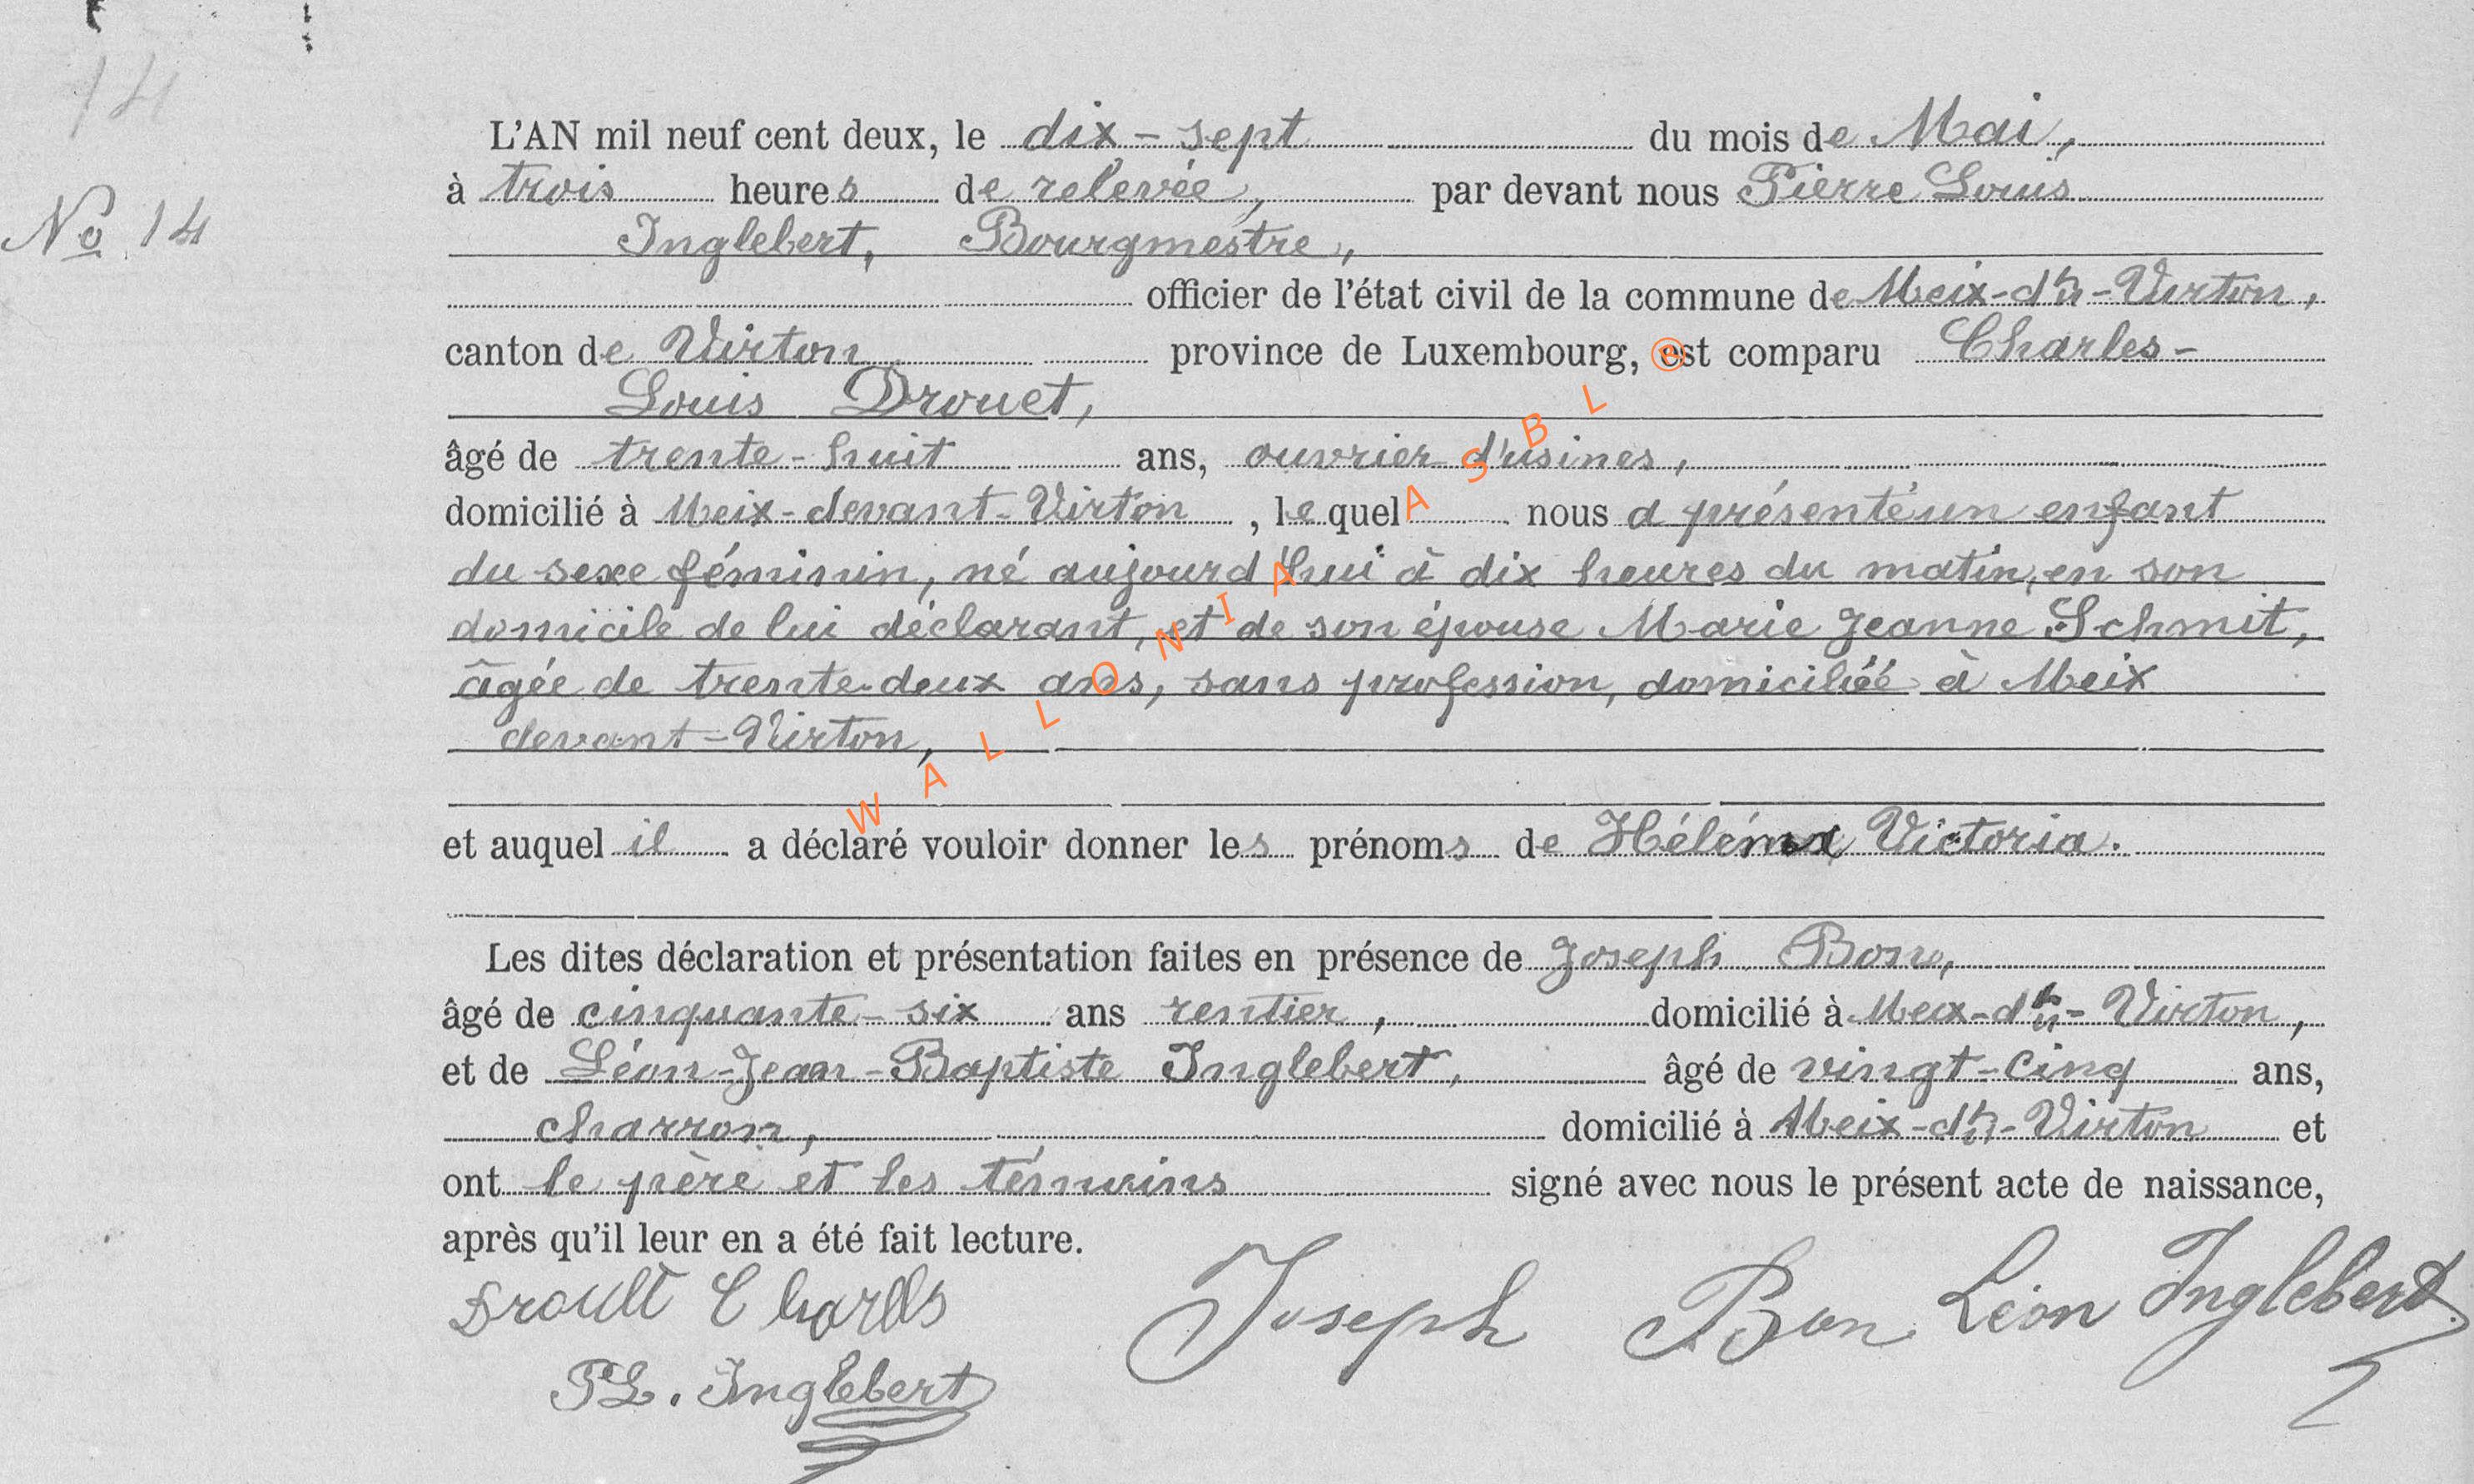 14
L'AN mil neuf cent deux, le dix-sept du mois de Mai,
à trois heures de relevée, par devant nous Pierre Louis
No 14
Inglebert, Bourgmestre,
officier de l'état civil de la commune de Meix-dt-Virton,
canton de Virton province de Luxembourg, est comparu Charles-
Louis Drouet,
âgé de trente-huit ans, ouvrier d'usines,
domicilié à Meix-devant-Virton, lequel nous a présenté un enfant
du sexe féminin, né aujourd'hui à dix heures du matin, en son
domicile de lui déclarant, et de son épouse Marie Jeanne Schmit,
âgée de trente-deux ans, sans profession, domiciliéé à Meix
devant-Virton,
et auquel il a déclaré vouloir donner les prénoms de Victoria.
Les dites déclaration et présentation faites en présence de Joseph Bon,
âgé de cinquante-six ans rentier, domicilié à Meix-dt-Virton,
et de Léon-Jean-Baptiste Inglebert, âgé de vingt-cinq ans,
charron, domicilié à Meix-dt-Virton et
ont le père et les témoins signé avec nous le présent acte de naissance,
après qu'il leur en a été fait lecture.
Charles
Joseph Bon Léon Inglebert
PL. Inglebert
WALLONIA ASBL ®